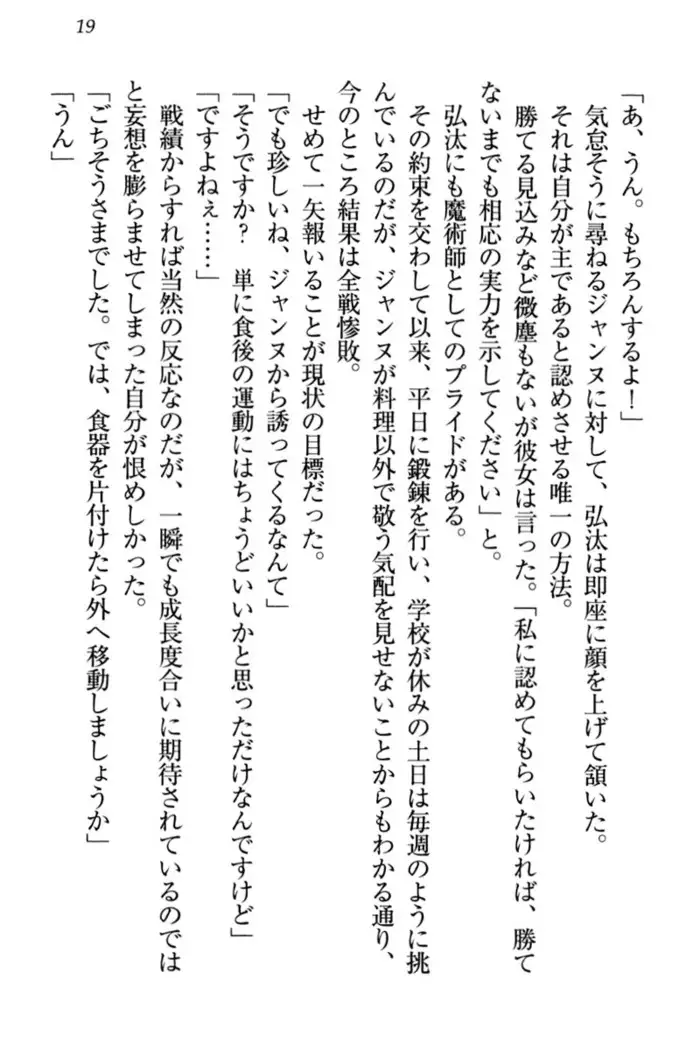 19
「あ、うん。もちろんするよ！」
気怠そうに尋ねるジャンヌに対して、弘汰は即座に顔を上げて頷いた。
それは自分が主であると認めさせる唯一の方法。
勝てる見込みなど微塵もないが彼女は言った。「私に認めてもらいたければ、勝て
ないまでも相応の実力を示してください」と。
弘汰にも魔術師としてのプライドがある。
その約束を交わして以来、平日に鍛錬を行い、学校が休みの土日は毎週のように挑
んでいるのだが、ジャンヌが料理以外で敬う気配を見せないことからもわかる通り、
今のところ結果は全戦惨敗。
せめて一矢報いることが現状の目標だった。
「でも珍しいね、ジャンヌから誘ってくるなんて」
「そうですか？　単に食後の運動にはちょうどいいかと思っただけなんですけど」
「ですよねぇ……」
戦績からすれば当然の反応なのだが、一瞬でも成長度合いに期待されているのでは
と妄想を膨らませてしまった自分が恨めしかった。
「ごちそうさまでした。では、食器を片付けたら外へ移動しましょうか」
「うん」